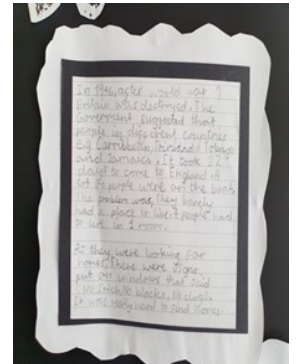 In 1946, after world war 2
Britain was destroyed. The
Government suggested that
people in different countries
e.g Carribbean, Trinidad & Tobago
and Jamaica. It took 22
days to come to England. A
lot of people were on the boats.
The problem was, They barely
had a place to live. people had
to live in 1 room.
As they were looking for
homes, There were signs
put on windows that said
No Irish, No blacks, No dogs.
It was really hard to find homes